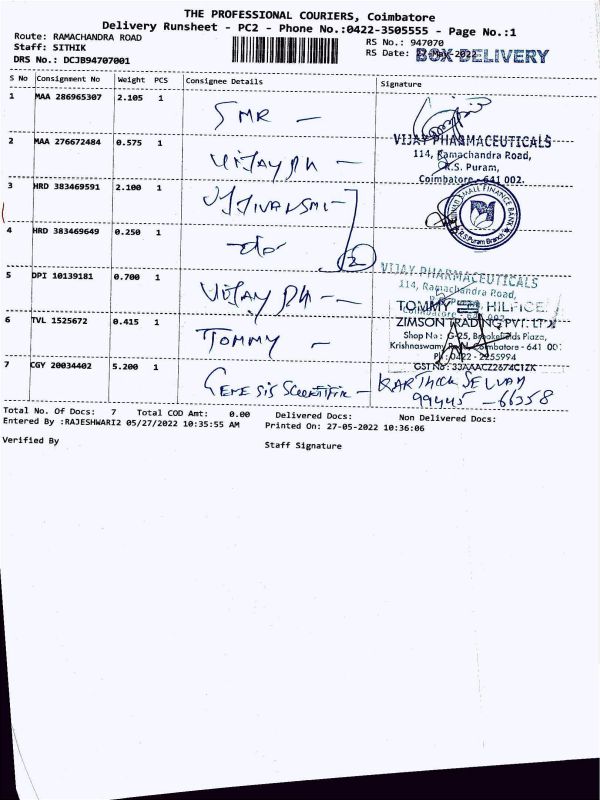 THE PROFESSIONAL COURIERS, Coimbatore
Delivery Runsheet - PC2 - Phone No.:0422-3505555 - Page No.:1
Route: RAMACHANDRA ROAD
Staff: SITHIK
DRS No.: DCJB94707001
RS No.: 947070
RS Date: 27-May-2022
BOX DELIVERY
S No Consignment No Weight PCS Consignee Details Signature
1 MAA 286965307 2.105 1 SMR —
2 MAA 276672484 0.575 1 VIJAY PH —
VIJAY PHARMACEUTICALS
114, Ramachandra Road,
R.S. Puram,
Coimbatore - 641 002.
3 HRD 383469591 2.100 1 UJJIVAN SMI -
SMALL FINANCE BANK
R.S Puram Branch
4 HRD 383469649 0.250 1 do
2
5 DPI 10139181 0.700 1 VIJAY PH -
VIJAY PHARMACEUTICALS
114, Ramachandra Road,
6 TVL 1525672 0.415 1 TOMMY -
TOMMY HILFIGER
ZIMSON TRADING PVT. LTD
Shop No : G-25, Brookefields Plaza,
Krishnaswamy Coimbatore - 641 00
Ph : 0422 - 2255994
GST No : 33AAACZ2674C1ZK
7 CGY 20034402 5.200 1 GENESIS Scientific - KARTHICK SELVAN
99445 - 66358
Total No. Of Docs: 7 Total COD Amt: 0.00 Delivered Docs: Non Delivered Docs:
Entered By :RAJESHWARI2 05/27/2022 10:35:55 AM Printed On: 27-05-2022 10:36:06
Verified By
Staff Signature